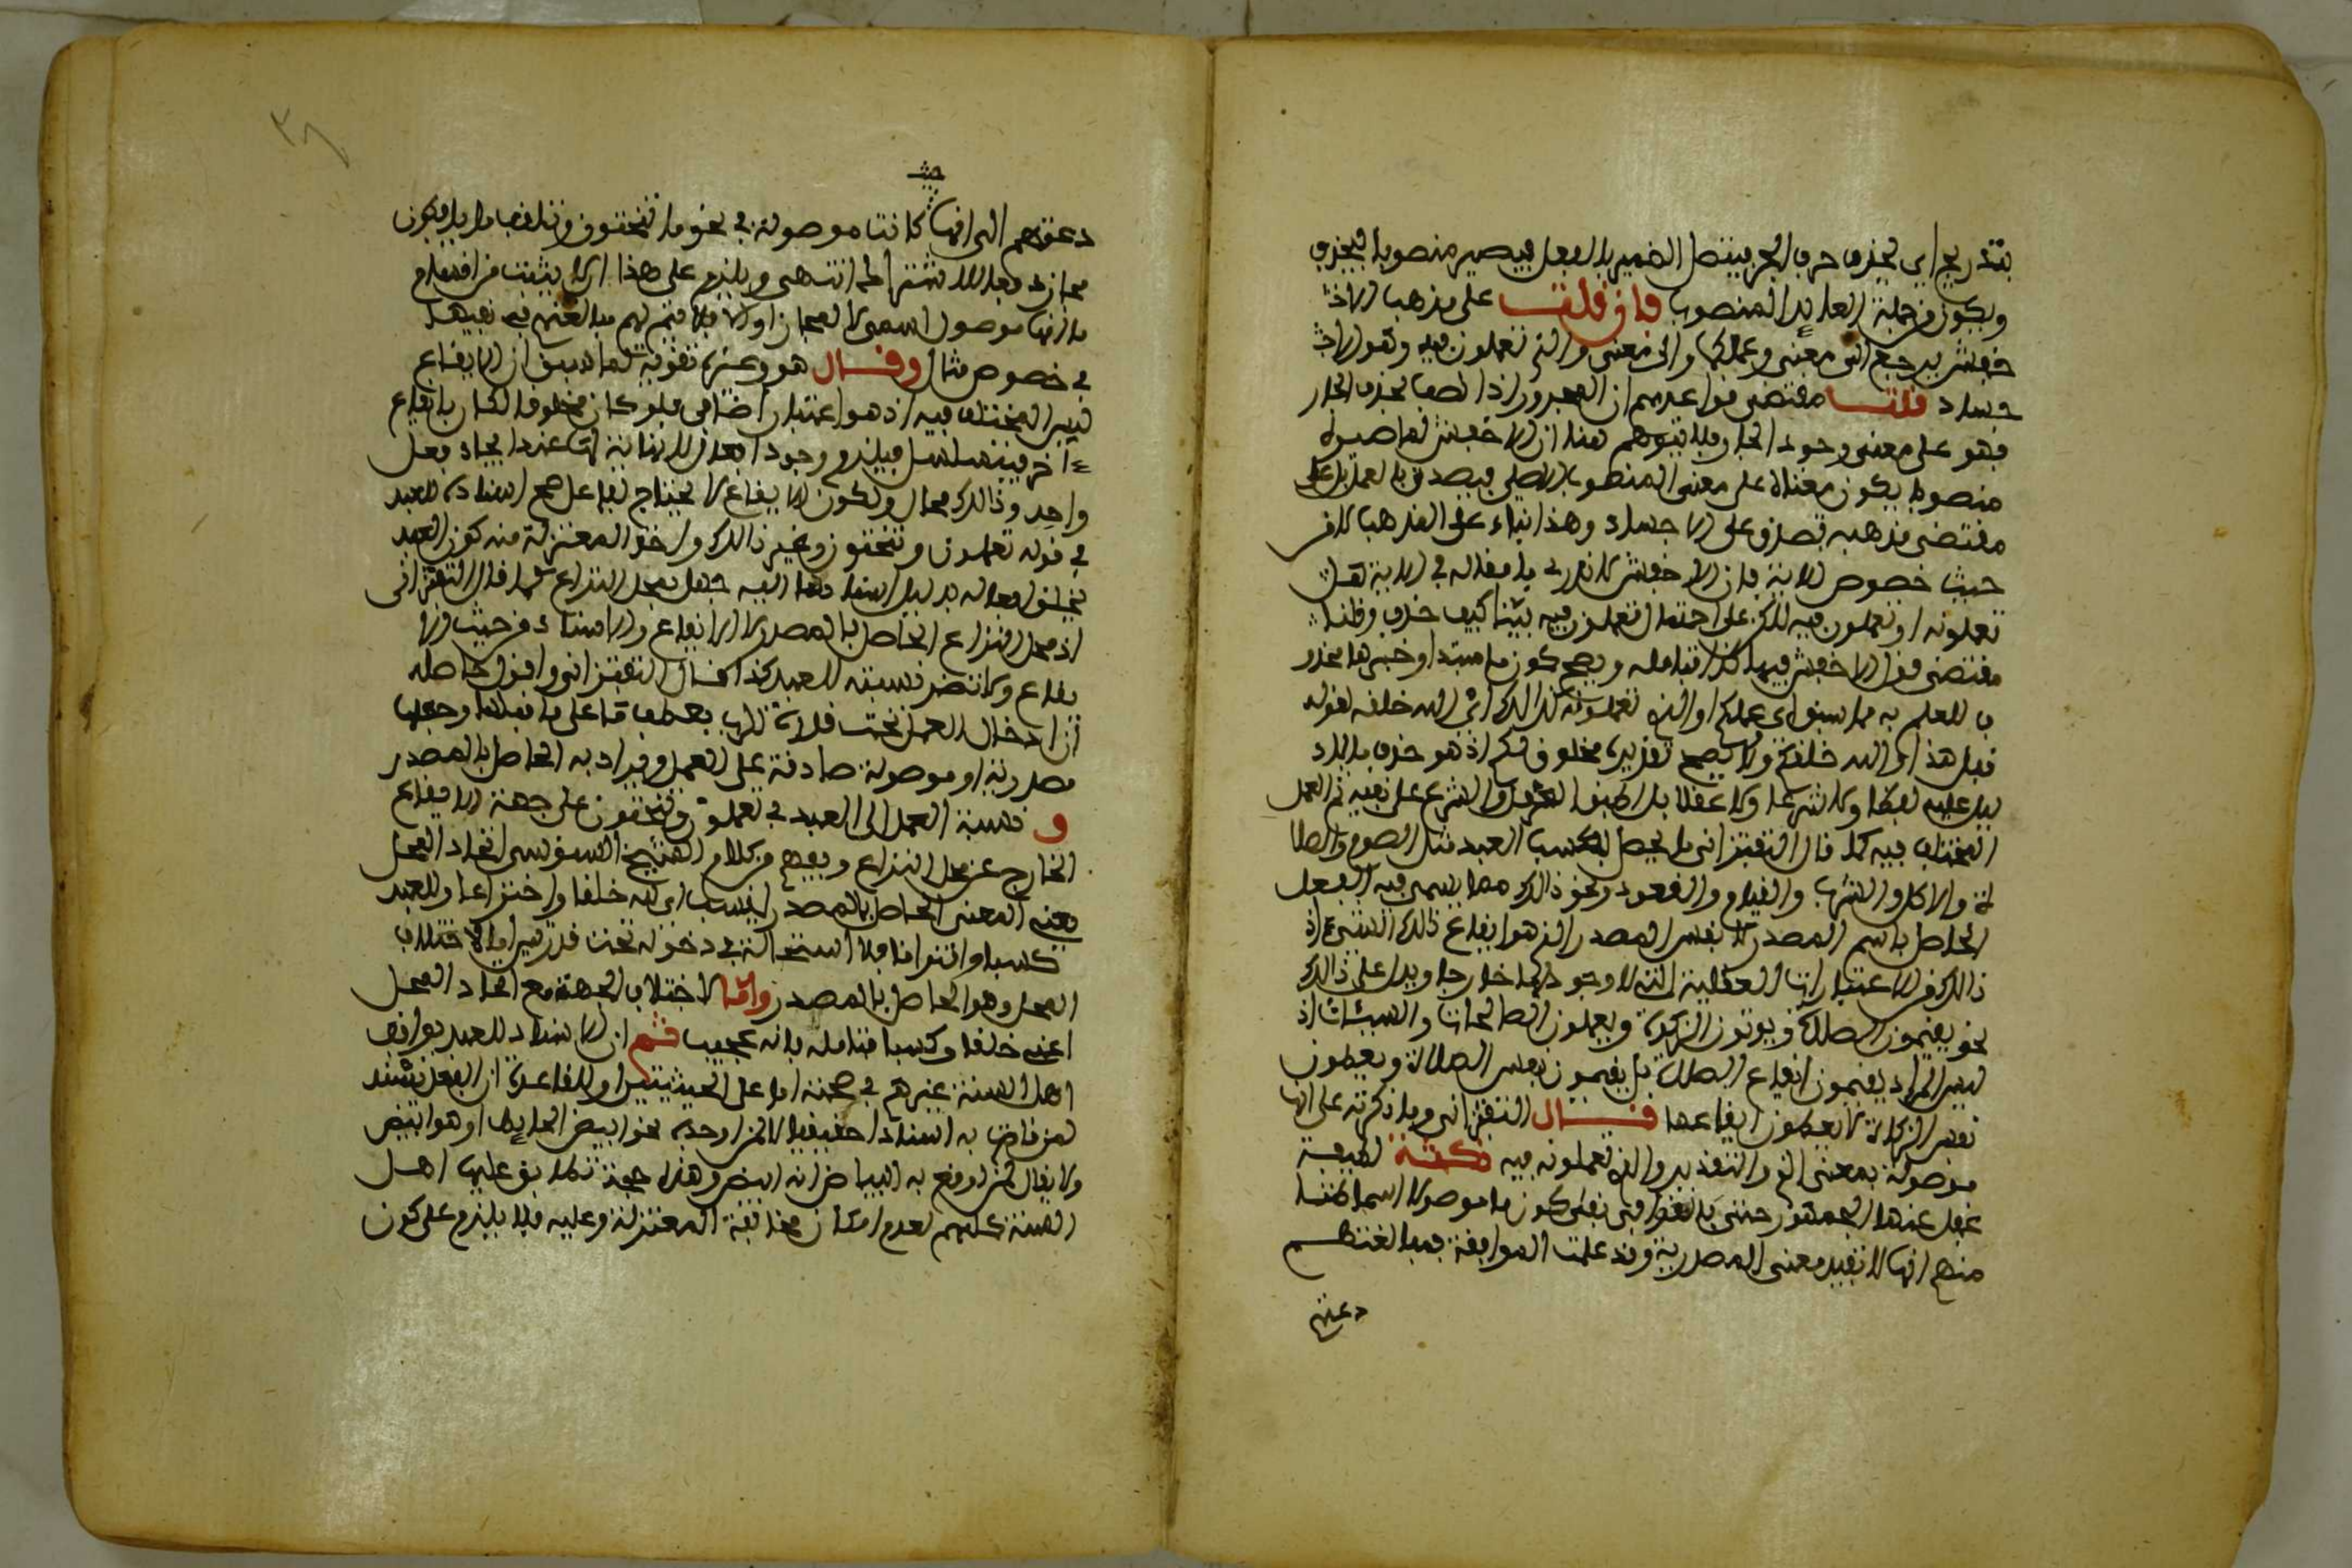 بتدريج اي بحذف حرف الجر فيتصل الضمير بالفعل فيصير منصوبا فيحذف
ويكون من جملة العايد المنصوب فان قلت على مذهب الاخ
خفش يرجع الى معنى وعملكم والى معنى والذي تعملون فيه وهو الاج
جساد قلت مقتضى قواعدهم ان المجرور اذا نصب بحذف الجار
فهو على معنى وجود الجار فلا يتوهم هنا ان الاخفش لما صيره
منصوبا يكون معناه على معنى المنصوب الاصلي فيصدق بالعمل بل على
مقتضى مذهبه تصدق على الاجساد وهذا بناء على المذهب لا من
حيث خصوص الاية فان الاخفش لا ندري ما مقاله في الاية هل
تعملونه او تعملون فيه لكن على احتمال تعملون فيه بينا كيف حذف وقلنا
مقتضى قول الاخفش فيها كذا فتامله ويصح كون ما مبتدا وخبرها محذو
ف للعلم به مما سبق اي عملكم او الذي تعملونه كذلك اي الله خلقه لقوله
قبل هذا والله خلقكم ولا يصح تقديره مخلوق لكم اذ هو حذف ما لا د
ليل عليه لفظا ولا شرعا ولا عقلا بل اطبق العقل والشرع على نفيه ثم العمل
المختلف فيه كما قال التفتزاني ما يحصل بكسب العبد مثل الصوم والصلا
ة والاكل والشرب والقيام والقعود ونحو ذلك مما يسمى فيه الفعل
الحاصل باسم المصدر لا نفس المصدر الذي هو ايقاع ذلك الشيء اذ
ذالك من الاعتبارات العقلية التي لا وجود لها خارجا ويدل على ذالك
نحو يقيمون الصلاة ويوتون الزكوة ويعملون الصالحات والسيئات اذ
ليس المراد يقيمون ايقاع الصلاة بل يقيمون نفس الصلاة ويعطون
نفس الزكاة لا يعطون ايقاعها قال التفتزاني وما ذكرته على انها
موصولة بمعنى الذي والتقدير والذي تعملونه فيه نكتة لطيفة
غفل عنها الجمهور حتى بالغوا في نفي كون ما موصولا اسما ظنا
منهم انها لا تفيد معنى المصدرية وقد علمت الموافقة فمبالغتهم
دعتهم
حيث
دعتهم الى انها كانت موصولة في نحو ما تنحتون وتلقف ما يافكون
مجازا دفعا للاشتراط انتهى ويلزم على هذا ان لا يثبت من اقسام
ما انها موصول اسمي لا لمجاز اولا فلا فيتم لهم مبالغتهم في نفيها
في خصوص مثال وقال هو وغيره تقوية لما سبق ان الايقاع
ليس المختلف فيه اذ هو اعتبار اضافي فلو كان مخلوقا لكان بايقاع
ءاخر فيتسلسل فيلزم وجود افعال لا نهاية لها عند ايجاد فعل
واحد وذالك محال ولكون الايقاع لا يحتاج لفاعل صح اسناده للعبد
في قوله تعملون وتنحتون وغير ذالك واخذ المعتزلة منه كون العبد
يخلق افعاله بدليل اسنادها اليه جهل بمحل النزاع كما قال التفتزاني
اذ محل النزاع الحاصل بالمصدر لا الايقاع والاسناد من حيث الا
يقاع ولا تضر نسبته للعبد كذا قال التفتزاني واقول حاصله
ان ادخال العمل تحت قدرة الرب بعطف ما على ما قبلها وجعلها
مصدرية او موصولة صادقة على العمل ويراد به الحاصل بالمصدر
و نسبة العمل الى العبد في تعملون وتنحتون على جهة الايقاع
الخارج عن محل النزاع ويفهم من كلام الشيخ السنوسي اتحاد المحل
يعني المعنى الحاصل بالمصدر ينسب الى الله خلقا واختراعا وللعبد
كسبا واقترانا فلا استحالة في دخوله تحت قدرتين اما لاختلاف
المحل وهو الحاصل بالمصدر واما لاختلاف الجهة مع اتحاد المحل
اعني خلقا وكسبا فتامله فانه عجيب ثم ان الاسناد للعبد يوافق
اهل السنة غيرهم في صحته اما على الحيثيتين او للقاعدة ان الفعل يسند
لمن قام به اسنادا حقيقيا لا لمن اوجده نحو ابيض الحايط او هو ابيض
ولا يقال لمن اوقع به البياض انه ابيض وهذه حجة تطابق عليها اهل
السنة كلهم لعدم امكان مخالفة المعتزلة وعليه فلا يلزم على كون